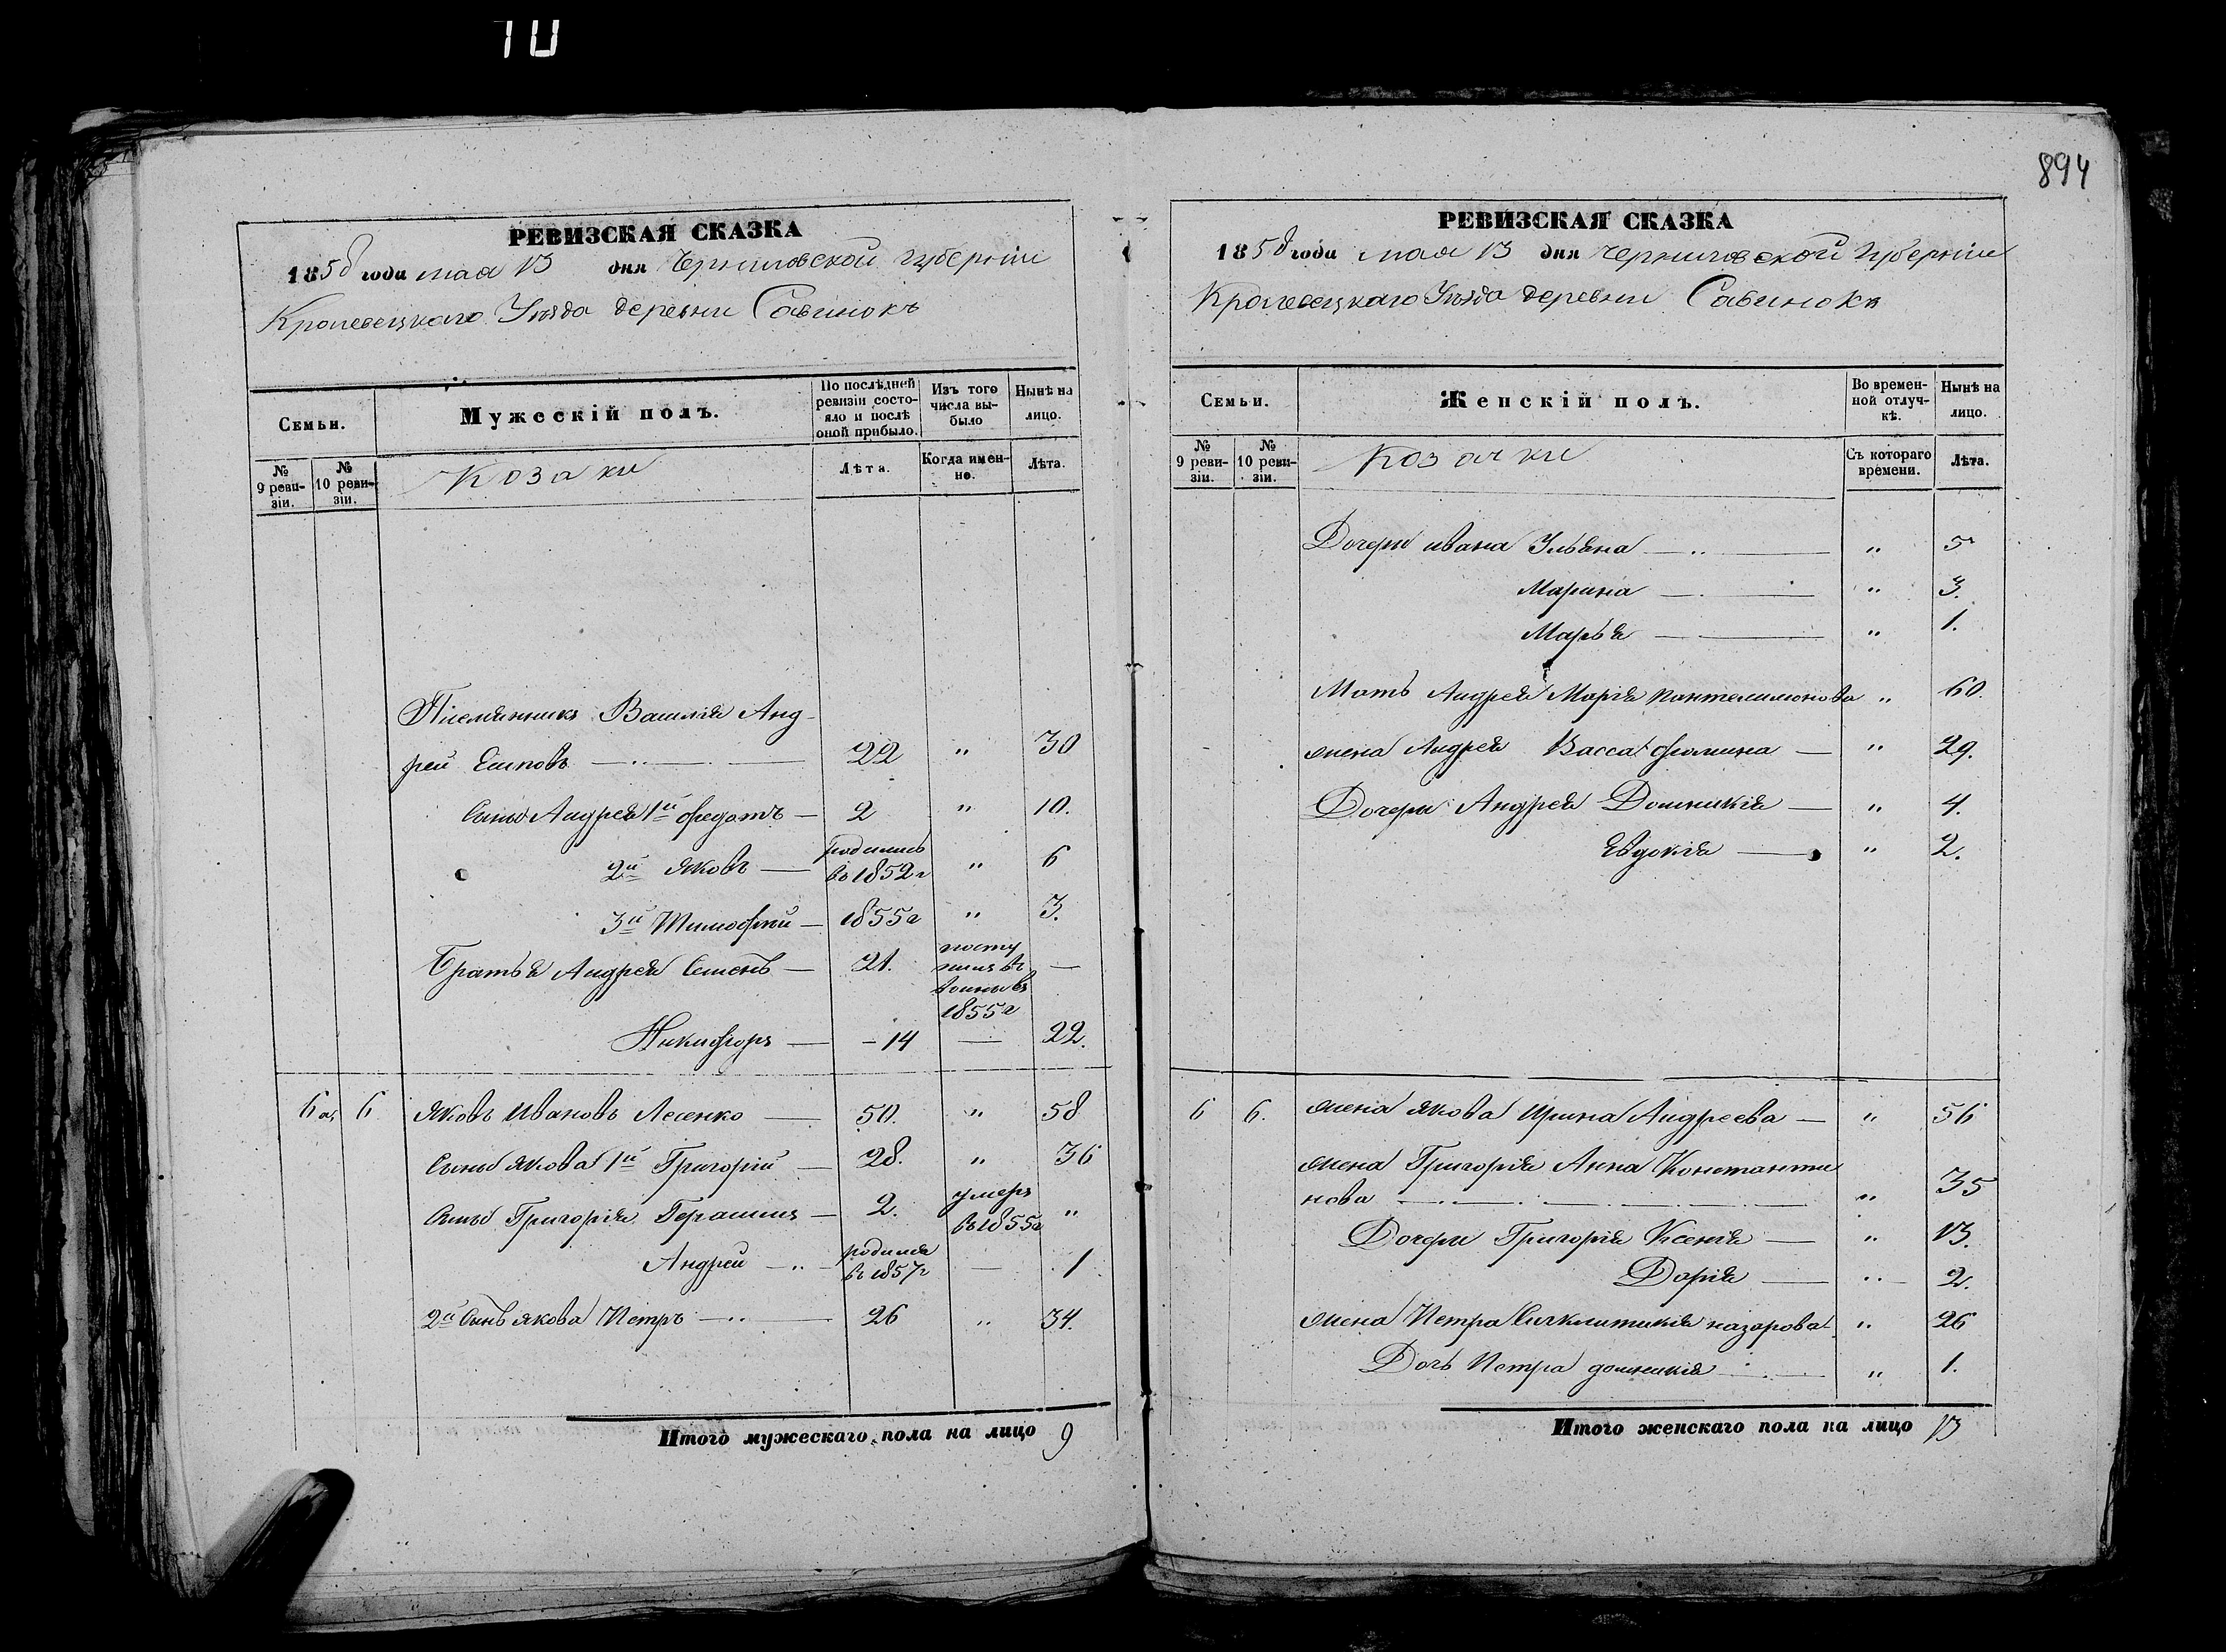 10
894
РЕВИЗСКАЯ СКАЗКА
1858 года мая 13 дня Черниговской губерніи
Кролевецкаго Уѣзда деревни Савинокъ
Семьи.
Мужескій полъ.
По послѣдней ревизіи состояло и послѣ оной прибыло.
Изъ того числа выбыло
Нынѣ на лицо.
№ 9 ревизіи.
№ 10 ревизіи.
Козаки
Лѣта.
Когда именно.
Лѣта.
Племянникъ Василія Анд-
рей Есиповъ 22 " 30
Сыны Андрея 1й Федотъ 2 " 10.
2й Яковъ родился въ 1852г " 6
3й Тимофей 1855г " 3.
Братья Андрея Семенъ 21. посту
пилъ въ
воины въ
1855г —
Никифоръ — 14 — 22.
6 6 Яковъ Ивановъ Лесенко 50. " 58
Сыны Якова 1й Григорій 28. " 36
Сыны Григорія Герасимъ 2. умеръ въ 1855г "
Андрей родился въ 1857г — 1
2й Сынъ Якова Петръ 26 " 34.
Итого мужескаго пола на лицо 9
РЕВИЗСКАЯ СКАЗКА
1858 года мая 13 дня Черниговской Губерніи
Кролевецкаго Уѣзда деревни Савинокъ
Семьи.
Женскій полъ.
Во временной отлучкѣ.
Нынѣ на лицо.
№ 9 ревизіи.
№ 10 ревизіи.
Козачки
Съ котораго времени.
Лѣта.
Дочери Ивана Ульяна " 5
Марина " 3.
Марья " 1.
Мать Андрея Марія Пантелимонова " 60.
жена Андрея Васса Фомина " 29.
Дочери Андрея Домникія " 4.
Евдокія " 2.
6 6. жена Якова Ирина Андреева " 56
жена Григорія Анна Константи
нова " 35
Дочери Григорія Ксенія " 13.
Дарія " 2.
жена Петра Синклитикія Назарова " 26
Дочь Петра Домникія " 1.
Итого женскаго пола на лицо 13